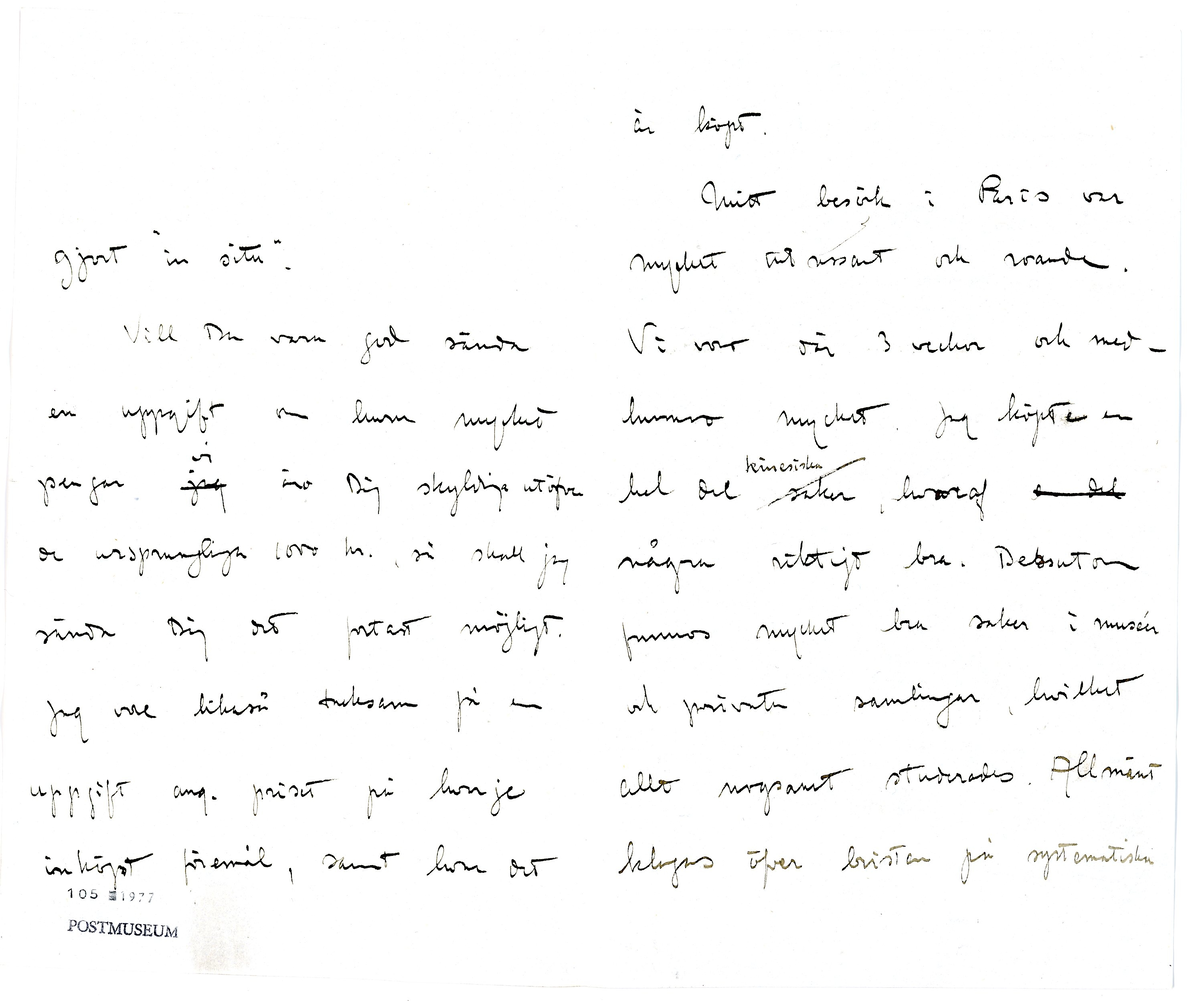 gjort "in situ".
Vill Du vara god sända
en uppgift om huru mycket
pengar jag vi äro Dig skyldiga utöfver
de ursprungliga 1000 kr., så skall jag
sända Dig det fortast möjligt.
Jag vore likaså tacksam få en
uppgift ang. priset på hvarje
inköpt föremål, samt hvar det
105 1977
POSTMUSEUM
är köpt.
Mitt besök i Paris var
mycket intressant och roande.
Vi voro där 3 veckor och med-
hunno mycket. Jag köpte en
hel del kinesiska saker, hvaraf en del
några riktigt bra. Dessutom
funnos mycket bra saker i muséer
och privata samlingar, hvilket
allt nogsamt studerades. Allmänt
klagas öfver bristen på systematiska